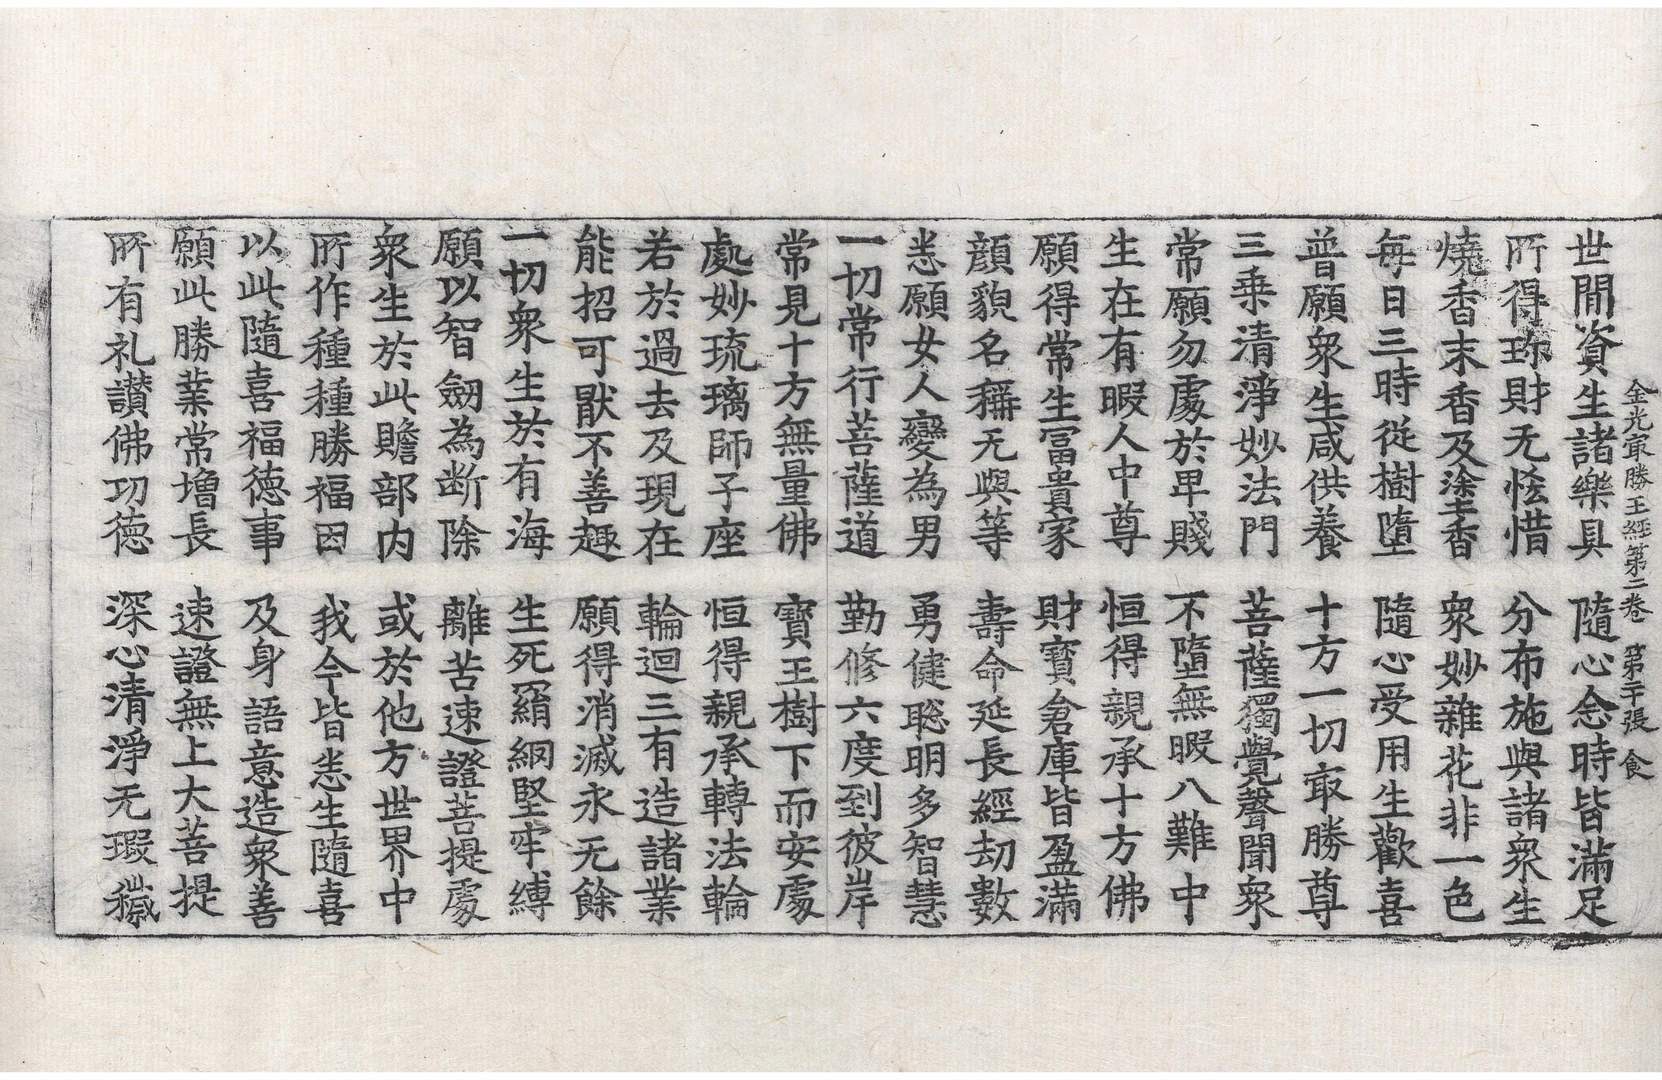 金光㝡勝王經第二卷　第二十張　食
世閒資生諸樂具　隨心念時皆滿足
所得珎財无恡惜　分布施與諸衆生
燒香末香及塗香　衆妙雜花非一色
每日三時從樹墮　隨心受用生歡喜
普願衆生咸供養　十方一切㝡勝尊
三乗清淨妙法門　菩薩獨覺聲聞衆
常願勿處於卑賤　不墮無暇八難中
生在有暇人中尊　恒得親承十方佛
願得常生冨貴家　財寶倉庫皆盈滿
顔貌名稱无與等　壽命延長經劫數
悉願女人變為男　勇健聡明多智慧
一切常行菩薩道　勤修六度到彼岸
常見十方無量佛　寶王樹下而安處
處妙琉璃師子座　恒得親承轉法輪
若於過去及現在　輪迴三有造諸業
能招可猒不善趣　願得消滅永无餘
一切衆生於有海　生死羂網堅牢縛
願以智劒為断除　離苦速證菩提處
衆生於此贍部内　或於他方世界中
所作種種勝福因　我今皆悉生隨喜
以此隨喜福徳事　及身語意造衆善
願此勝業常増長　速證無上大菩提
所有礼讃佛功徳　深心清淨无瑕穢